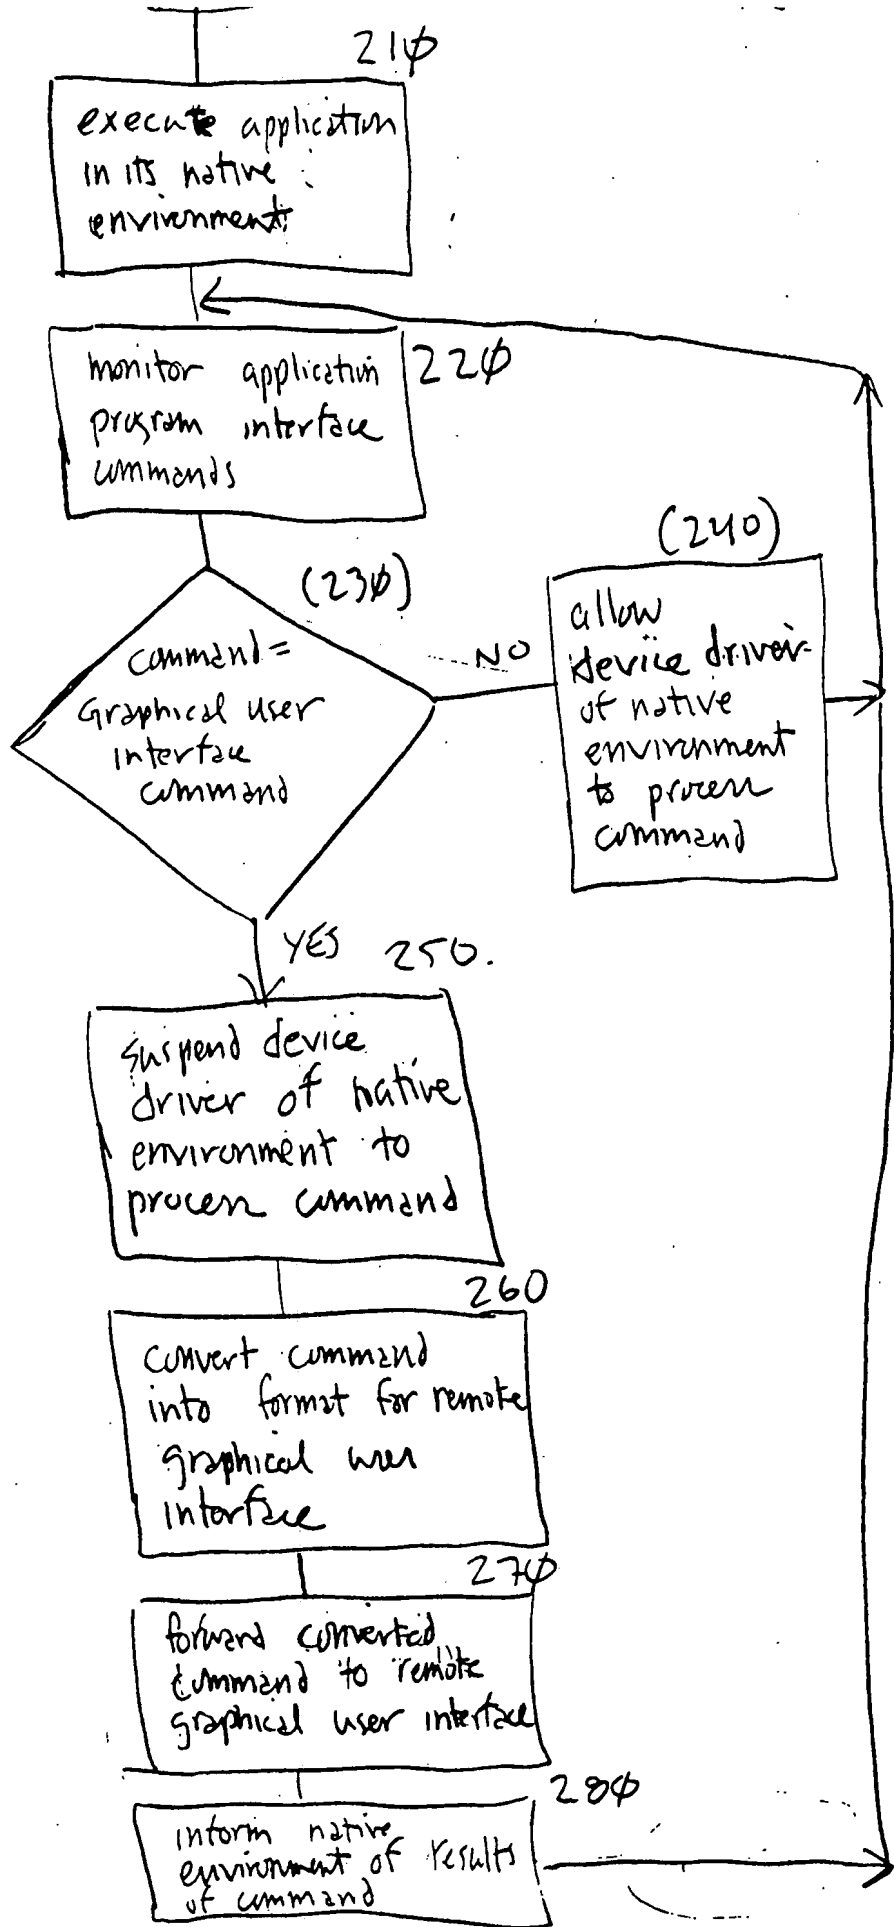 210
execute application
in its native
environment
220
monitor application
program interface
commands
(230)
command =
Graphical user
interface
command
NO
(240)
allow
device driver
of native
environment
to process
command
YES
250.
suspend device
driver of native
environment to
process command
260
convert command
into format for remote
graphical user
interface
270
forward converted
command to remote
graphical user interface
280
inform native
environment of results
of command